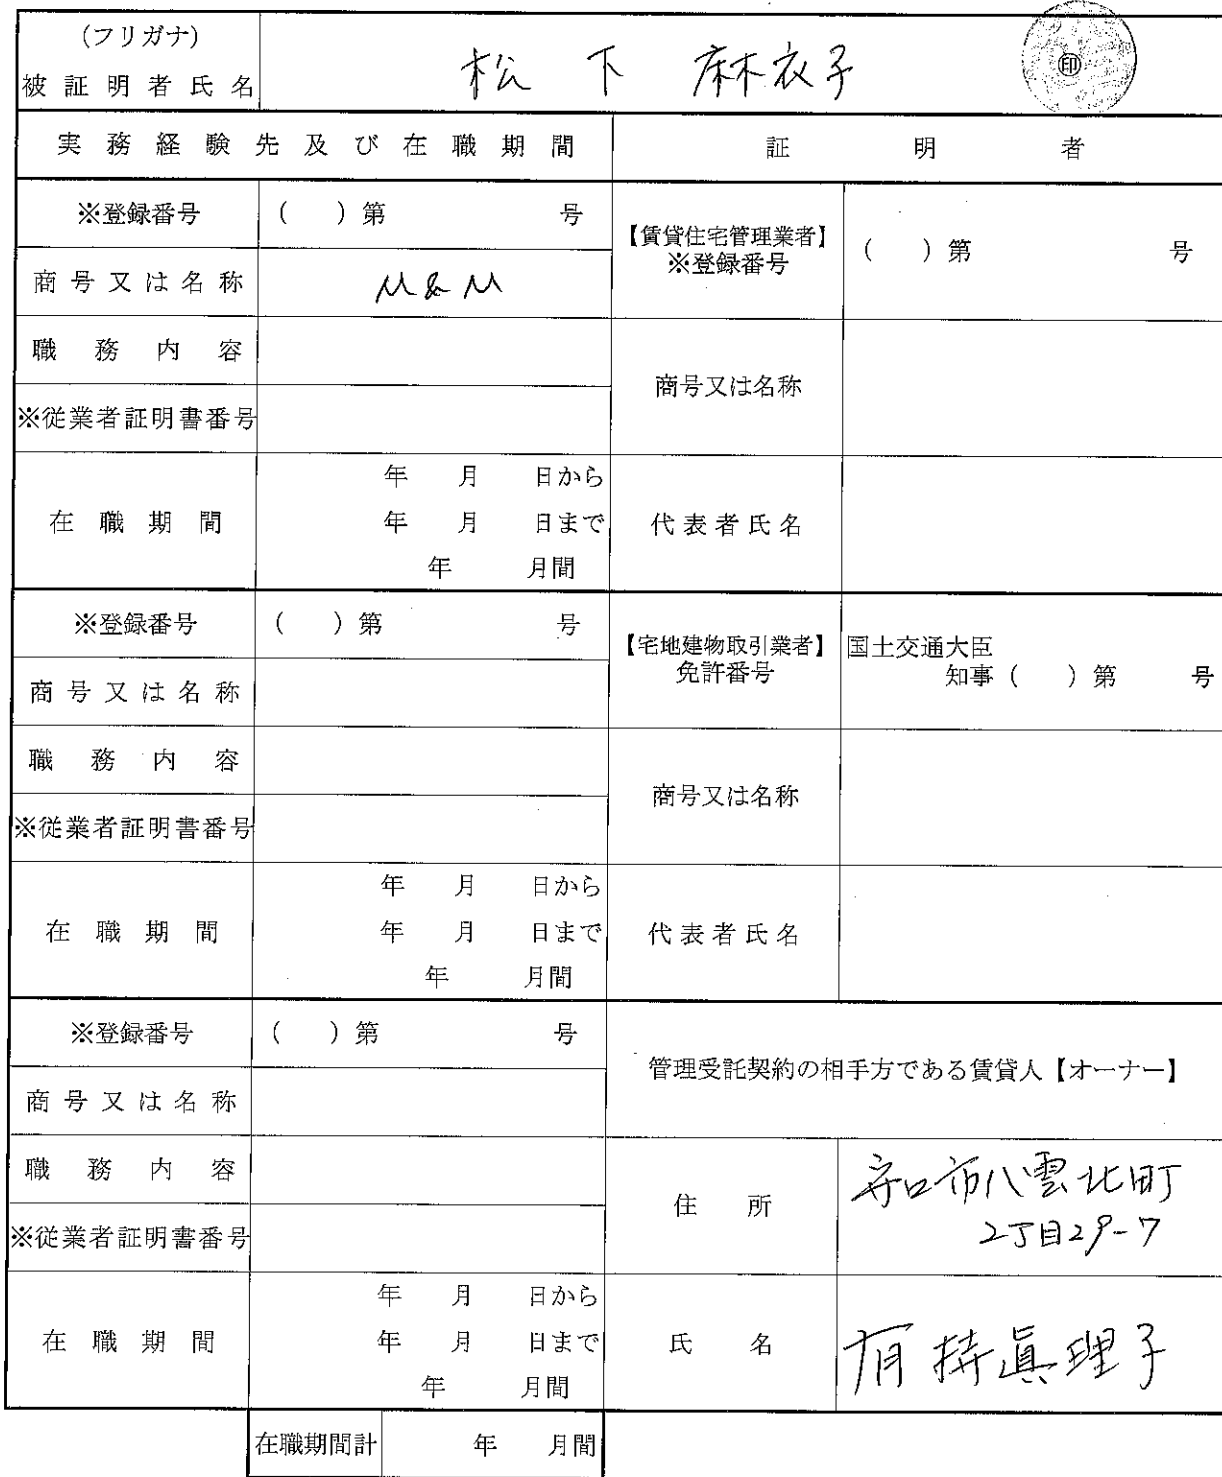 (フリガナ)
被証明者氏名 松下 麻衣子 ㊞
実務経験先及び在職期間 証明者
※登録番号 ( )第 号
【賃貸住宅管理業者】
※登録番号 ( )第 号
商号又は名称 M&M
職務内容
商号又は名称
※従業者証明書番号
年 月 日から
在職期間 年 月 日まで 代表者氏名
年 月間
※登録番号 ( )第 号
【宅地建物取引業者】 国土交通大臣
免許番号 知事( )第 号
商号又は名称
職務内容
商号又は名称
※従業者証明書番号
年 月 日から
在職期間 年 月 日まで 代表者氏名
年 月間
※登録番号 ( )第 号
管理受託契約の相手方である賃貸人【オーナー】
商号又は名称
職務内容
住所 守口市八雲北町
2丁目29-7
※従業者証明書番号
年 月 日から
在職期間 年 月 日まで 氏名 有持眞理子
年 月間
在職期間計 年 月間